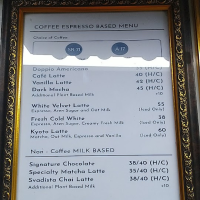 COFFEE ESPRESSO BASED MENU
Choice of Coffee
Doppio Americano
Café Latte 40 (H/C)
Vanilla Latte 45 (H/C)
Dark Mocha 45 (H/C)
Additional Plant Based Milk +10
White Velvet Latte 55
Espresso, Aren Sugar and Oat Milk (Iced Only)
Fresh Cold White 38
Espresso, Aren Sugar, Creamy Fresh Milk (Iced Only)
Kyoto Latte 60
Matcha, Oat Milk, Espresso and Vanilla (Iced Only)
Non - Coffee MILK BASED
Signature Chocolate 38/40 (H/C)
Specialty Matcha Latte 35/40 (H/C)
Svadista Chai Latte 38/40 (H/C)
Additional Plant Based Milk +10